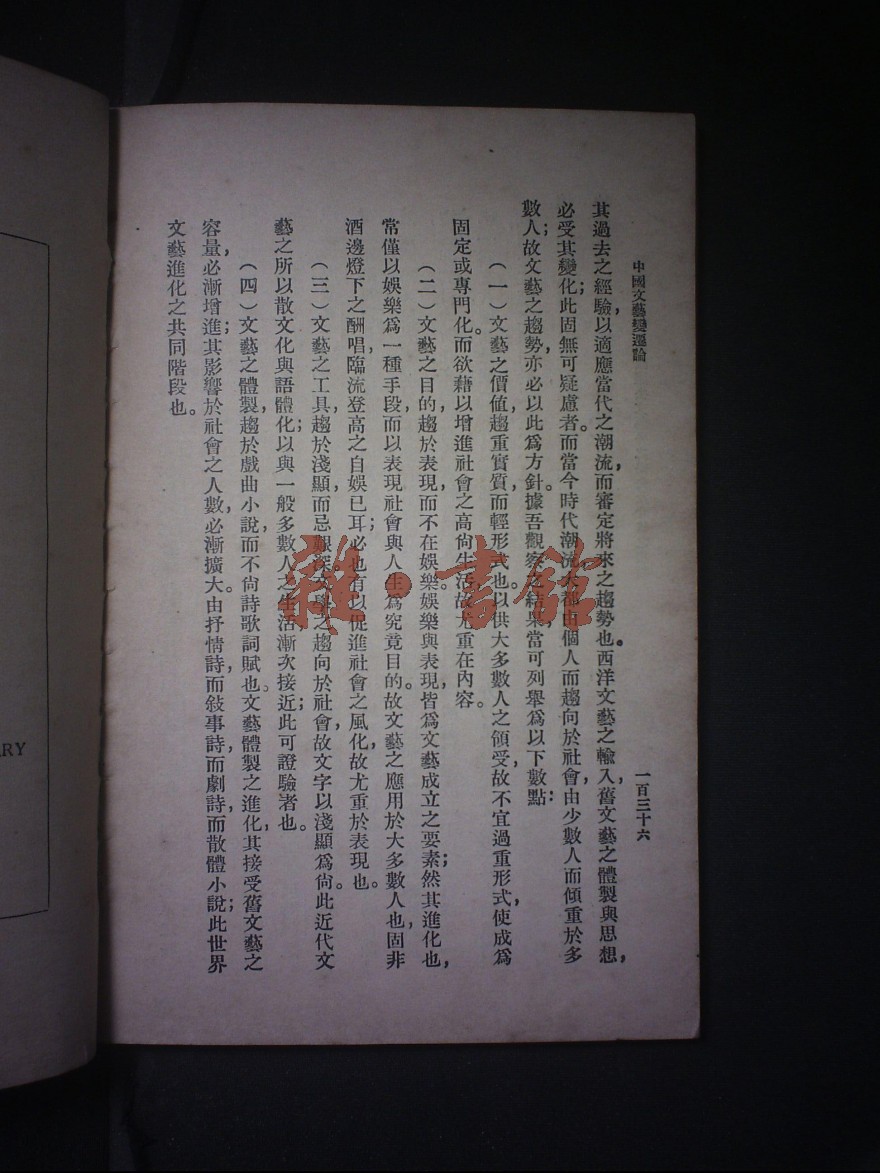 中國文藝變遷論
一百三十六
其過去之經驗，以適應當代之潮流，而審定將來之趨勢也。西洋文藝之輸入，舊文藝之體製與思想，
必受其變化；此固無可疑慮者。而當今時代潮流，大都由個人而趨向於社會，由少數人而傾重於多
數人；故文藝之趨勢，亦必以此爲方針。據吾觀察之結果，當可列舉爲以下數點：
（一）文藝之價值，趨重實質，而輕形式也。以供大多數人之領受，故不宜過重形式，使成爲
固定或專門化。而欲藉以增進社會之高尚生活，故尤重在內容。
（二）文藝之目的，趨於表現，而不在娛樂。娛樂與表現，皆爲文藝成立之要素；然其進化也，
常僅以娛樂爲一種手段，而以表現社會與人生爲究竟目的。故文藝之應用於大多數人也，固非
酒邊燈下之酬唱，臨流登高之自娛已耳；必也有以促進社會之風化，故尤重於表現也。
（三）文藝之工具，趨於淺顯，而忌艱深。文學之趨向於社會，故文字以淺顯爲尙。此近代文
藝之所以散文化與語體化；以與一般多數人之生活，漸次接近；此可證驗者也。
（四）文藝之體製，趨於戲曲小說，而不尙詩歌詞賦也。文藝體製之進化，其接受舊文藝之
容量，必漸增進；其影響於社會之人數，必漸擴大。由抒情詩，而敍事詩，而劇詩，而散體小說；此世界
文藝進化之共同階段也。
RARY
雜·書館